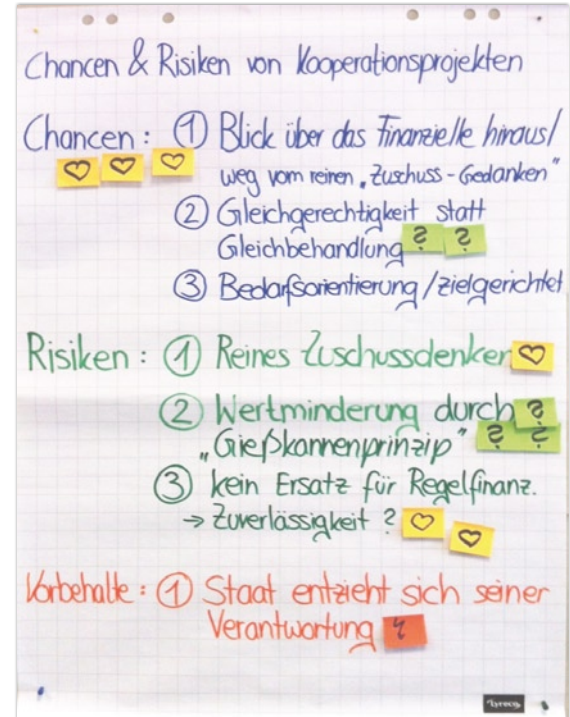 Chancen & Risiken von Kooperationsprojekten
Chancen: ① Blick über das Finanzielle hinaus/
weg vom reinen „Zuschuss-Gedanken"
② Gleichgerechtigkeit statt
Gleichbehandlung ? ?
③ Bedarfsorientierung/zielgerichtet
Risiken: ① Reines Zuschussdenken
② Wertminderung durch ?
„Gießkannenprinzip" ? ?
③ kein Ersatz für Regelfinanz.
→ Zuverlässigkeit ?
Vorbehalte: ① Staat entzieht sich seiner
Verantwortung
Lyreco